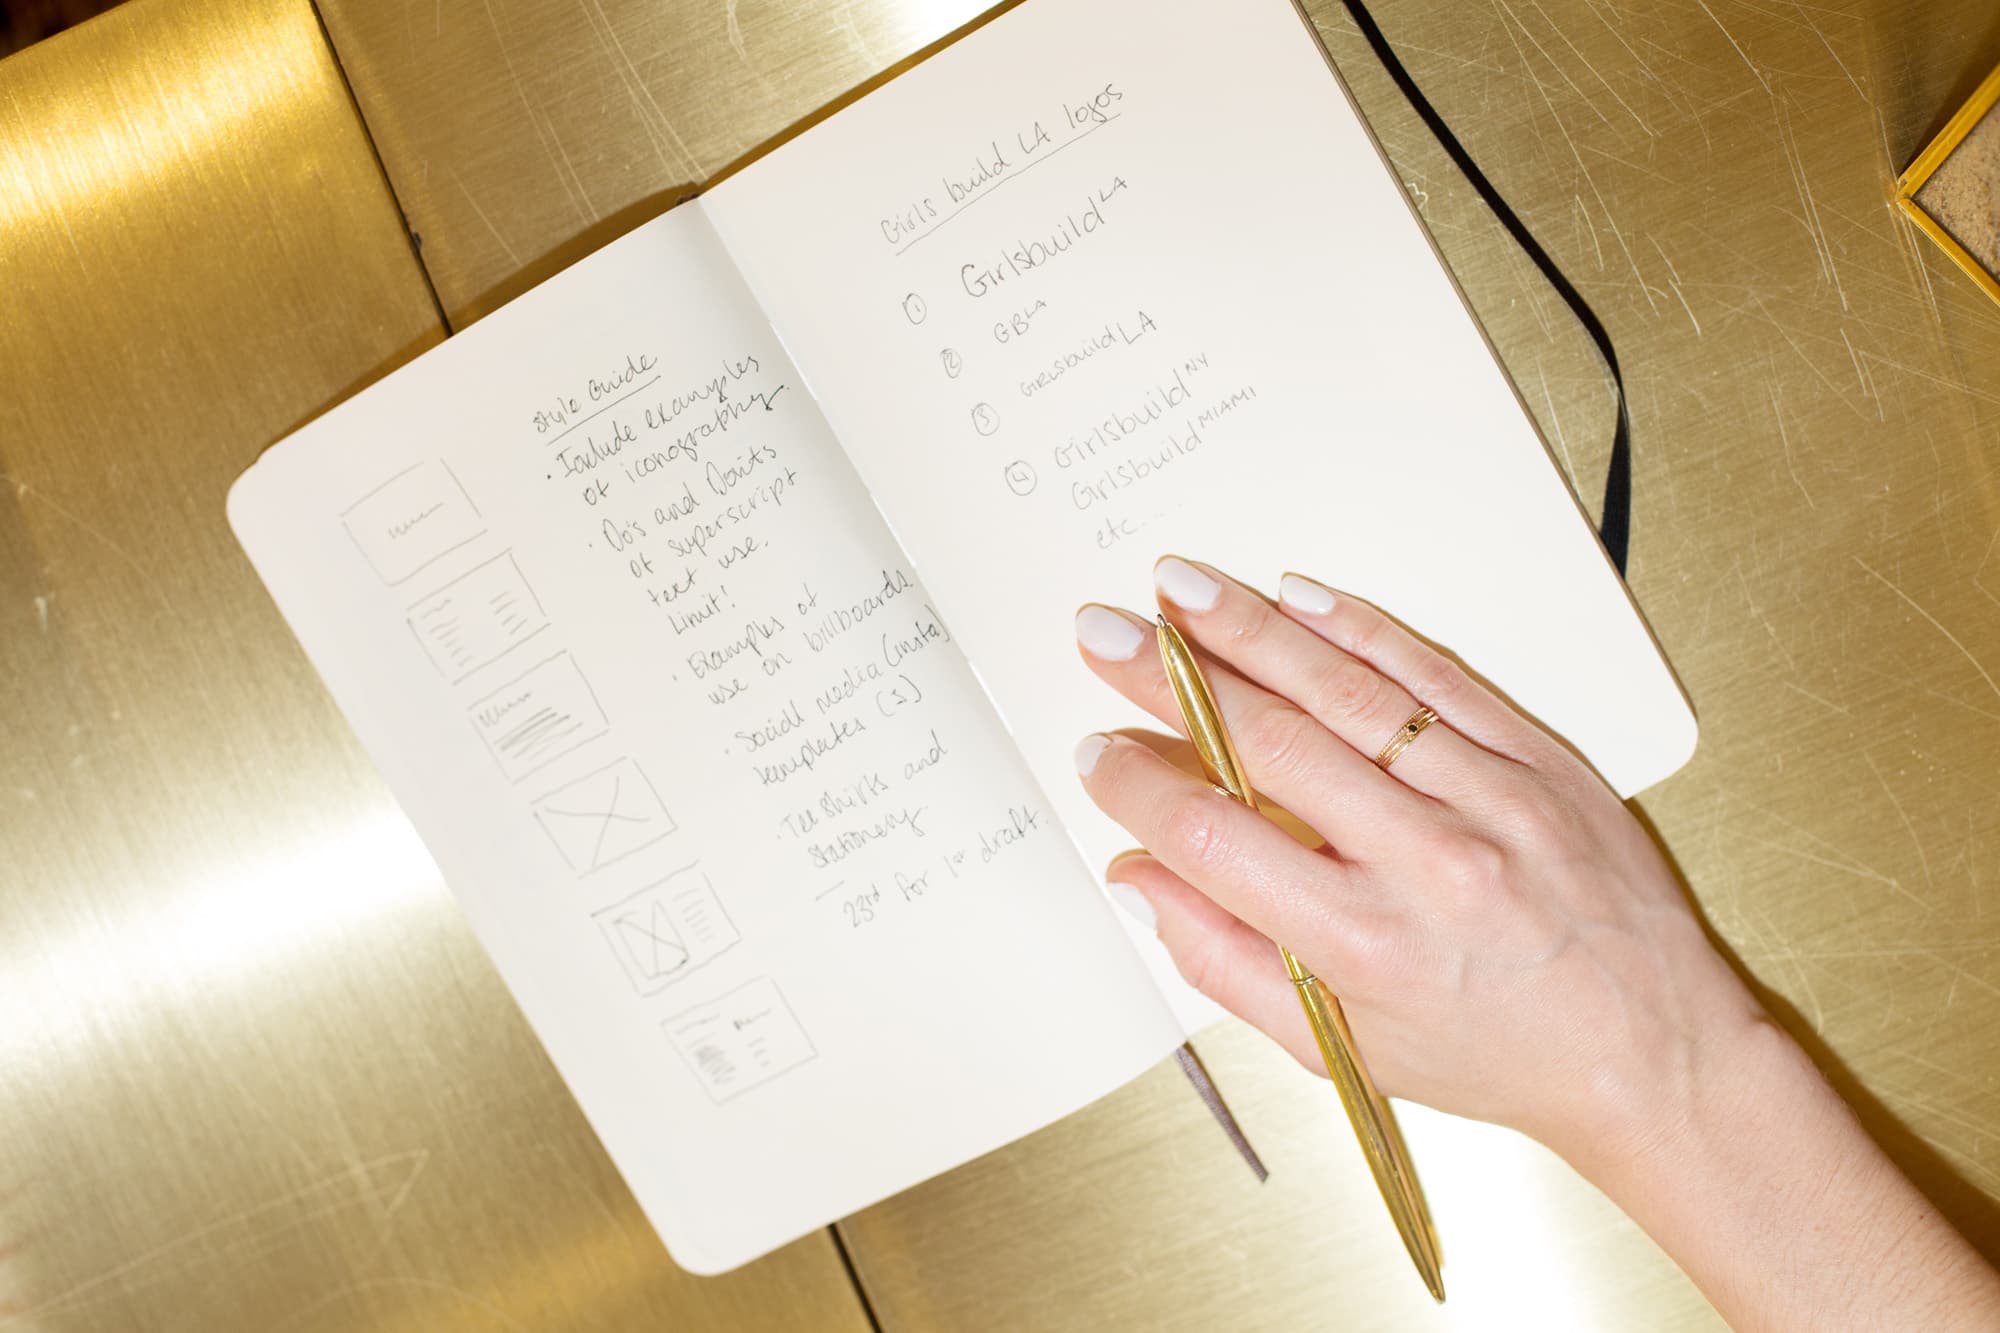 Style Guide
• Include examples
of iconography.
• Do's and Don'ts
of superscript
text use.
Limit!
• Examples of
use on billboards.
• Social media (insta)
templates (s)
• Tee shirts and
stationery.
—
23rd for 1st draft.
Girls build LA logos
① Girlsbuild LA
② GBLA
③ GIRLSbuild LA
④ Girlsbuild NY
Girlsbuild MIAMI
etc....